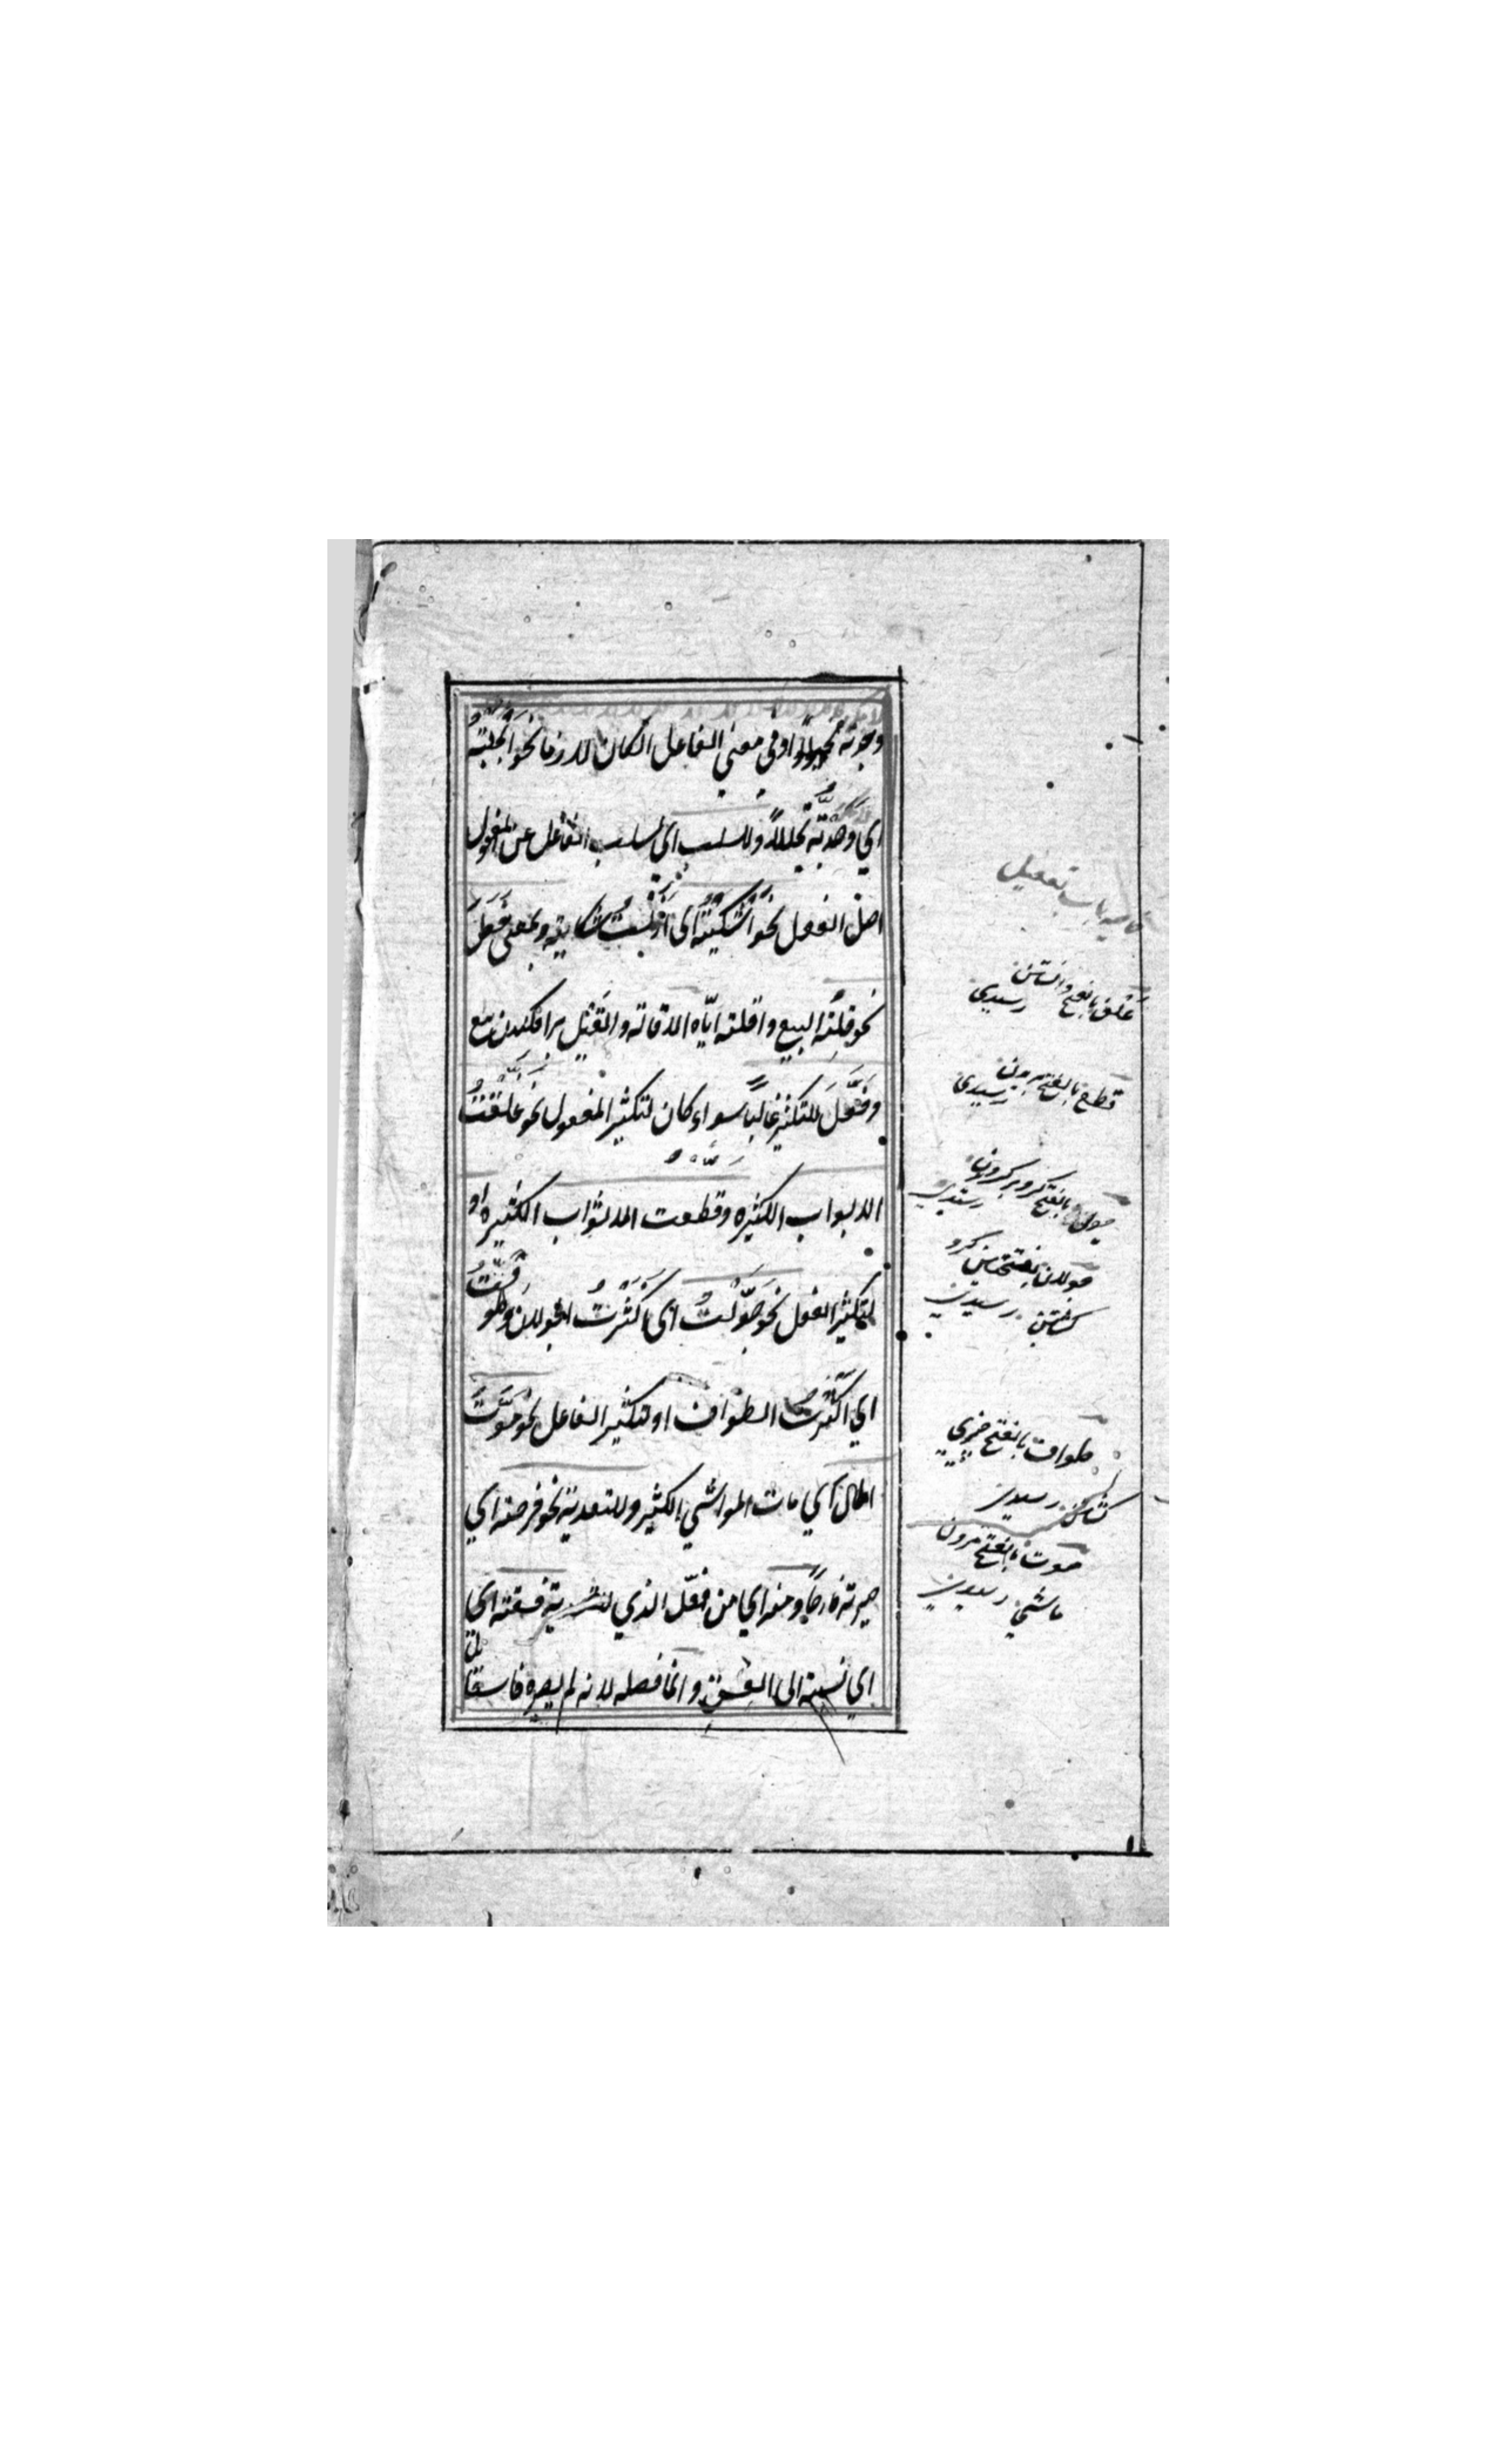 وجدته محمودًا او في معني الفاعل ان كان لازما نحو ابخلته
اي وجدته بخيلاً وللسلب اي لسلب الفاعل عن المفعول
اصل الفعل نحو اَشْكَيْتُهُ اى اَزَلْتُ شكايته وبمعنى فَعَلَ
نحو قلته البيع واقلته ايّاه الاقالة والقيل برافكندن بيع
وفَعَّلَ للتكثير غالبًا سواء كان لتكثير المفعول نحو غلّقتُ
الابواب الكثيره وقطعت الاثواب الكثيره او
لتكثير الفعل نحو جَوَّلْتُ اى اَكْثَرْتُ الجولان وطوّفتُ
اي اَكْثَرْتُ الطواف او لتكثير الفاعل نحو مَوَّتَ
المال اي مات المواشي الكثير وللتعدية نحو فرحته اي
صيرته فارحًا ومنه اي من فعّل الذي للتعدية فسقته اى
اي نسبته الى الفسق وانما فصله لانه لم يصيره فاسقًا
باب تفعيل
غلق بالفتح
رسيدي
قطع بالفتح بريدن
رسيدي
بالفتح
رسيدي
جولان بفتحتين گرد
گشتن رسيدي
طواف بالفتح
رسيدي
موت بالفتح مردن
ماشي رسيدي